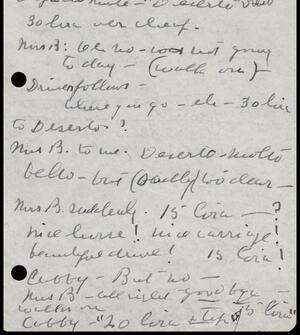 "Deserto"
30 lira ver cheap.
Mrs B: Oh no - not going
today - (walk on)
Driver follows -
where you go - eh - 30 lira
to Deserto?
Mrs B. to me. Deserto - molto
bello - but (sadly) too dear -
Mrs B. suddenly. 15 lira - ?
nice horse! nice carriage!
beautiful drive! 15 lira!
Cabby - But no -
Mrs B - all right goodbye -
walks on
Cabby - "20 lira & tip" "15 lira"